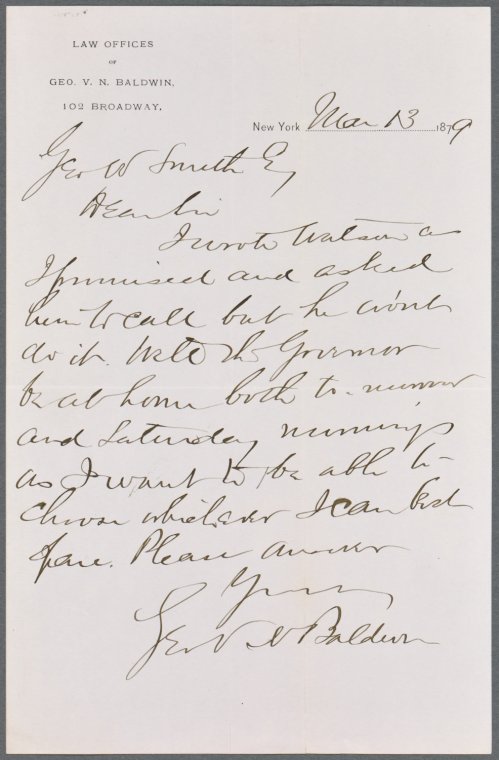 LAW OFFICES
OF
GEO. V. N. BALDWIN,
102 BROADWAY.
New York Mar 13 1879
Geo W Smith Esq
Dear Sir
I wrote Watson as
I promised and asked
him to call but he wont
do it. Will the Governor
be at home both to-morrow
and Saturday mornings
as I want to be able to
choose whichever I can best
spare. Please answer
Yours
Geo V N Baldwin